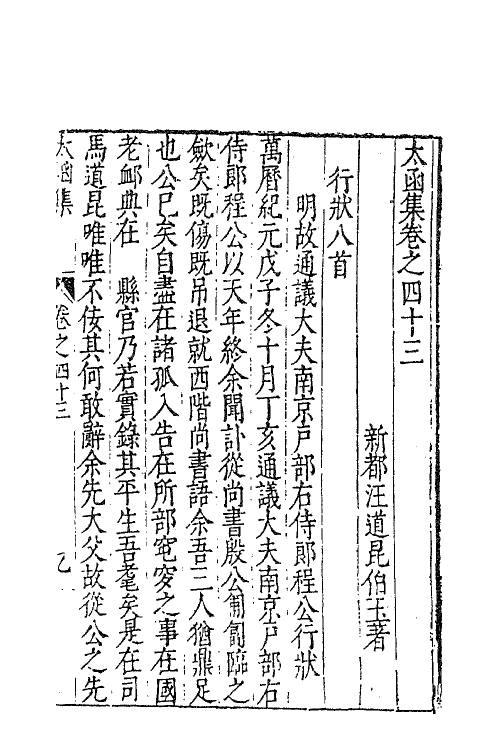 太函集卷之四十三
新都汪道昆伯玉著
行狀八首
明故通議大夫南京戸部右侍郎程公行狀
萬曆紀元戊子冬十月丁亥通議大夫南京戸部右
侍郎程公以天年終余聞訃從尚書殷公匍匐臨之
斂矣既傷既吊退就西階尚書語余吾三人猶鼎足
也公已矣自盡在諸孤入告在所部窀穸之事在國
老卹典在 縣官乃若實錄其平生吾耄矣是在司
馬道昆唯唯不佞其何敢辭余先大父故從公之先
太函集 卷之四十三